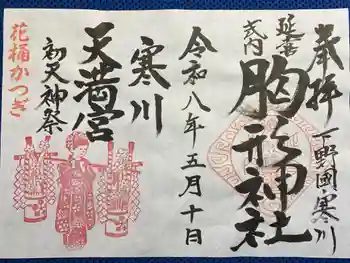 奉拝
下野國寒川
延喜
式内
胸形神社
令和八年五月十日
寒川
天満宮
初天神祭
花桶かつぎ